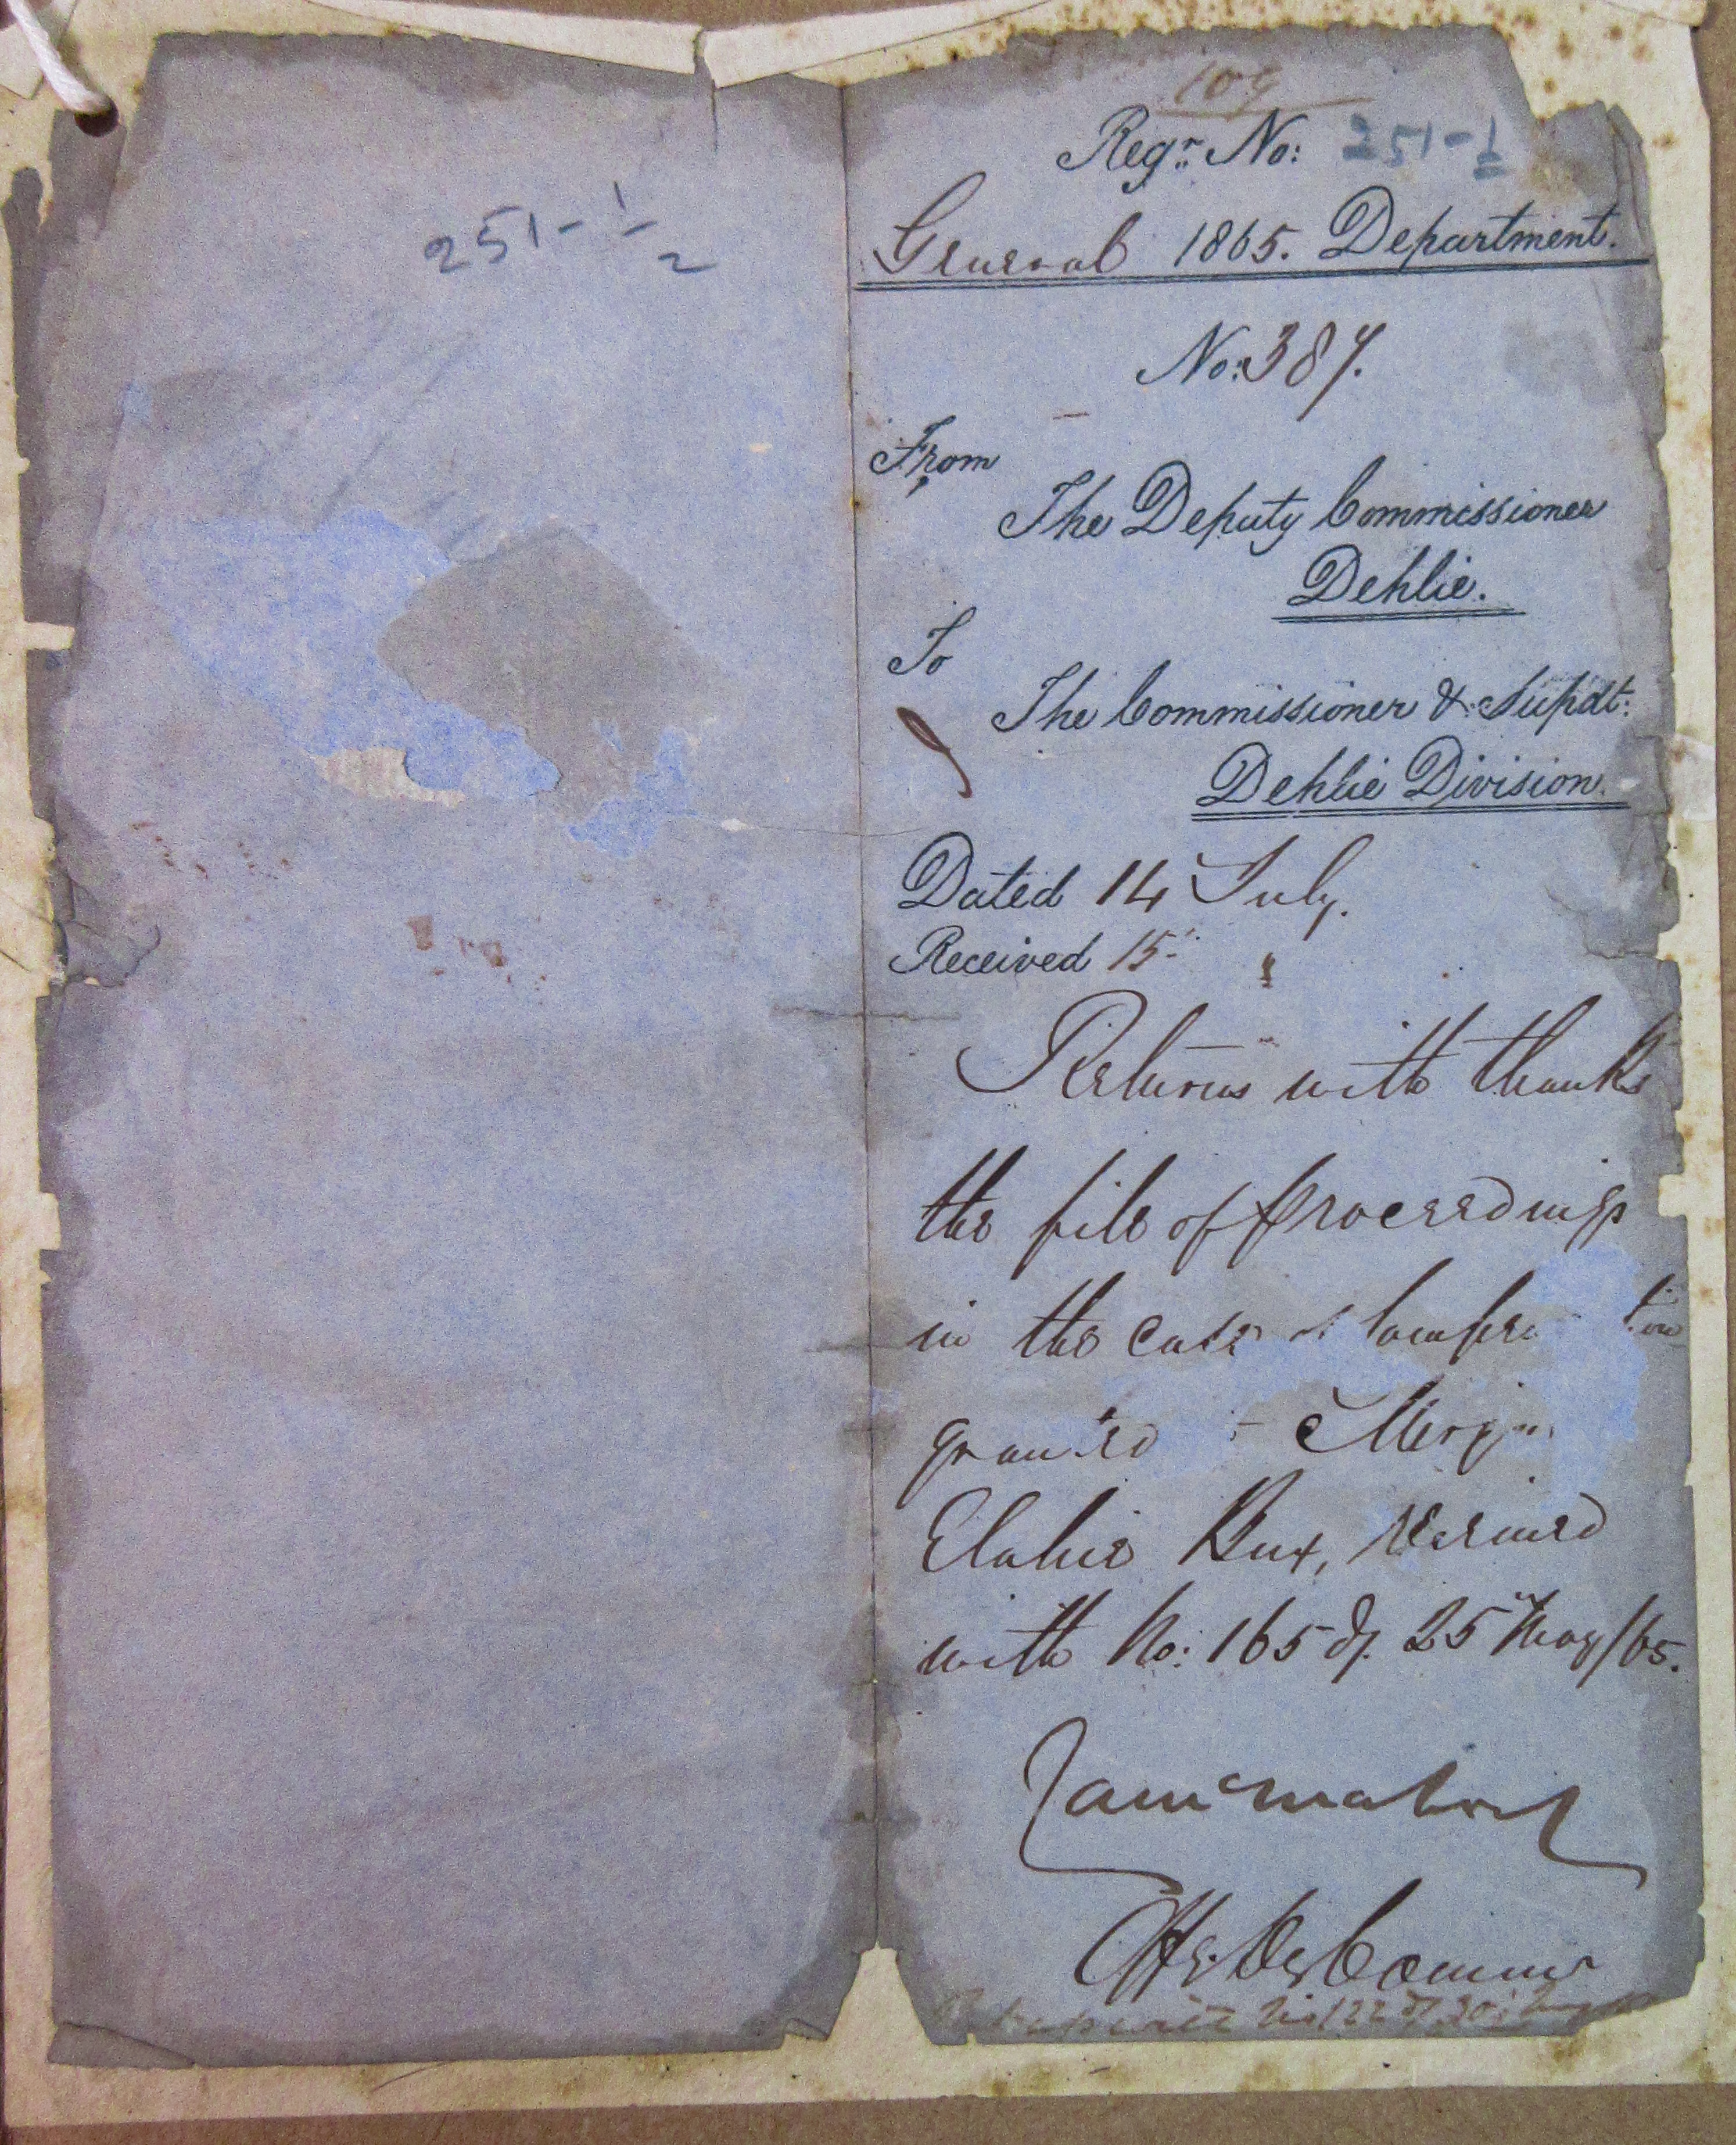 251-1/2
109
Regr. No: 251-1/2
General 1865. Department.
No: 387.
From
The Deputy Commissioner
Dehlie.
To
The Commissioner & Supdt:
Dehlie Division.
Dated 14 July.
Received 15 "
Returns with thanks
the file of proceedings
in the case of
granted Mirza
Elahie Bux, received
with No: 165 of 25 May/65.
Offg. Dy Commr